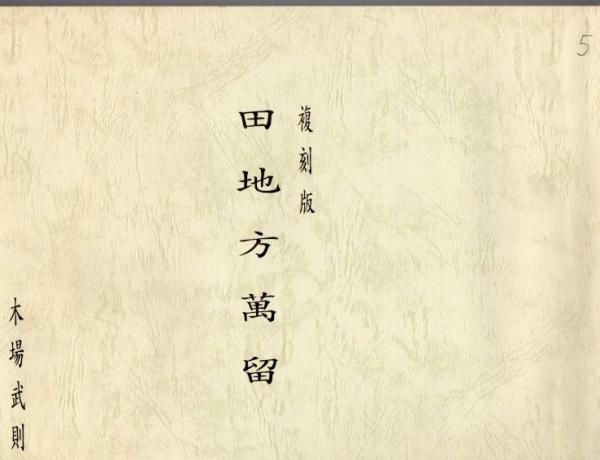 5
複刻版
田地方萬留
木場武則